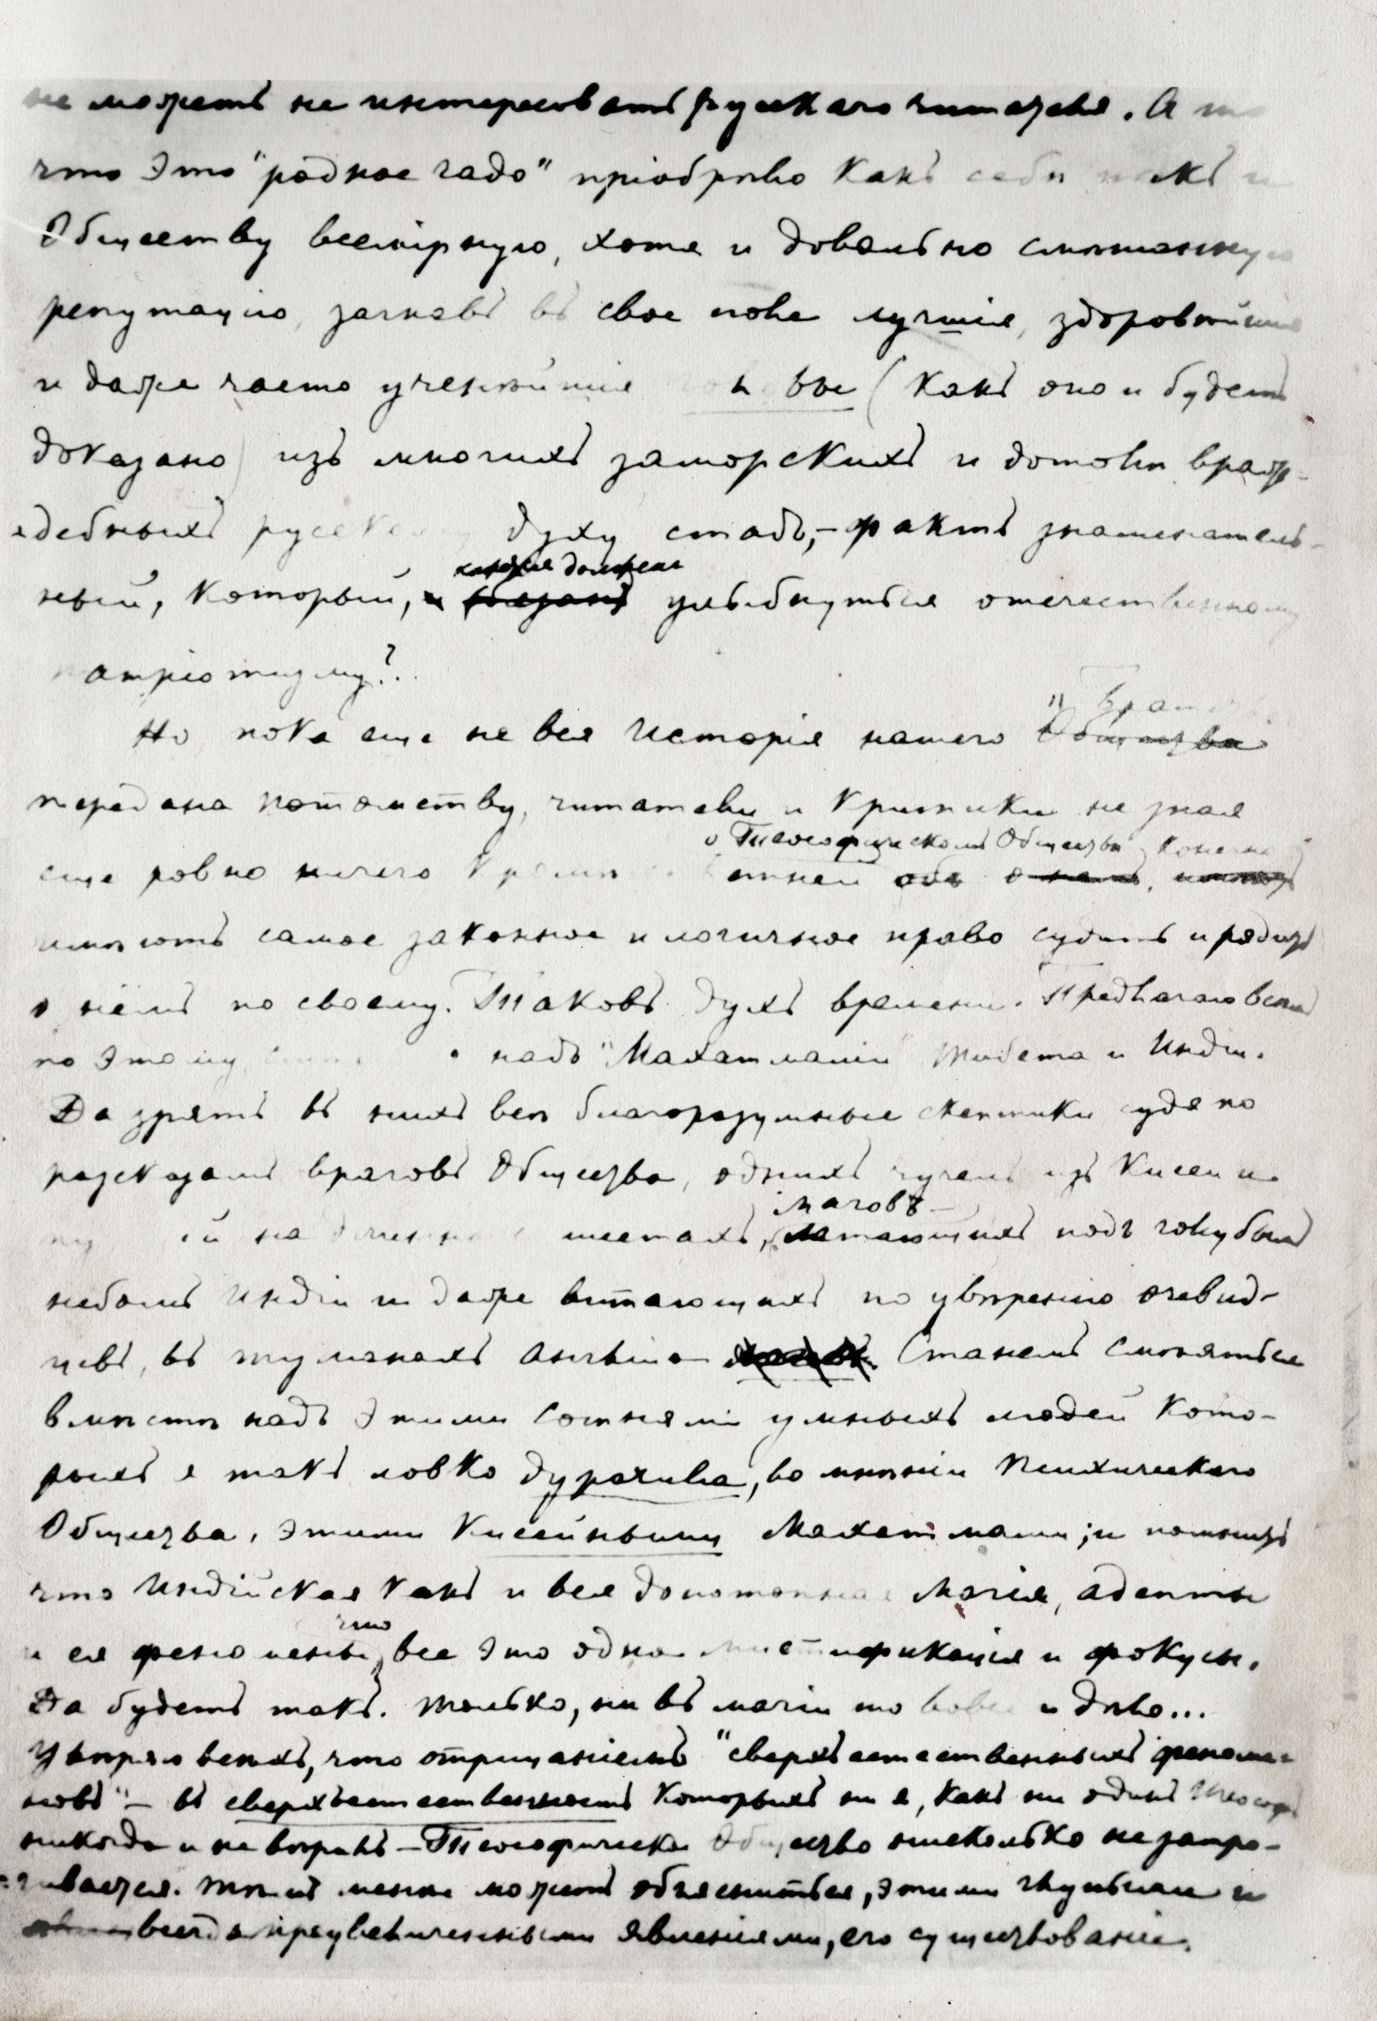 не можетъ не интересовать русскаго читателя. А то
что это "родное чадо" пріобрѣло какъ себѣ такъ и
Обществу всемірную, хотя и довольно смѣшанную
репутацію, загнавъ въ свое поле лучшія, здоровѣйшія
и даже часто ученѣйшія головы (какъ оно и будетъ
доказано) изъ многихъ заморскихъ и дотолѣ враж-
дебныхъ русскому духу стадъ, – фактъ знаменатель-
хотя должен
ный, который, улыбнуться отечественному
патріотизму?..
"Братства
Но, пока еще не вся исторія нашего Общества
передана потомству, читатели и критики не зная
о Теософическомъ Обществѣ, конечно
еще ровно ничего кромѣ сплетней объ о немъ,
имѣютъ самое законное и логичное право судить и рядить
о нёмъ по своему. Таковъ духъ времени. Предлагаю всѣмъ
по этому надъ "Махатмами" Тибета и Индіи.
Да зрятъ въ нихъ всѣ благоразумные скептики судя по
разсказамъ враговъ Общества, однихъ чучелъ изъ кисеи и
маговъ –
на длинныхъ шестахъ, летающихъ подъ голубымъ
небомъ Индіи и даже витающихъ по увѣренію очевид-
цевъ, въ туманахъ Англіи – Станемъ смѣяться
вмѣстѣ надъ этими сотнями умныхъ людей кото-
рыхъ я такъ ловко дурачила, во мнѣніи Психическаго
Общества, этими кисейными Махатмами; и помнить
что Индійская какъ и вся допотопная магія, адепты
что
и ея феномены, все это одна мистификація и фокусы.
Да будетъ такъ. Только, не въ магіи то вовсе и дѣло...
Увѣряю всѣхъ, что отрицаніемъ "сверхъестественныхъ феноме-
новъ" – въ сверхъестественность которыхъ ни я, какъ ни одинъ теософъ
никогда и не вѣрилъ – Теософическое Общество нисколько не затро-
гивается. Тѣмъ менѣе можетъ объясниться, этими глупыми и
всегда преувеличенными явленіями, его существованіе.